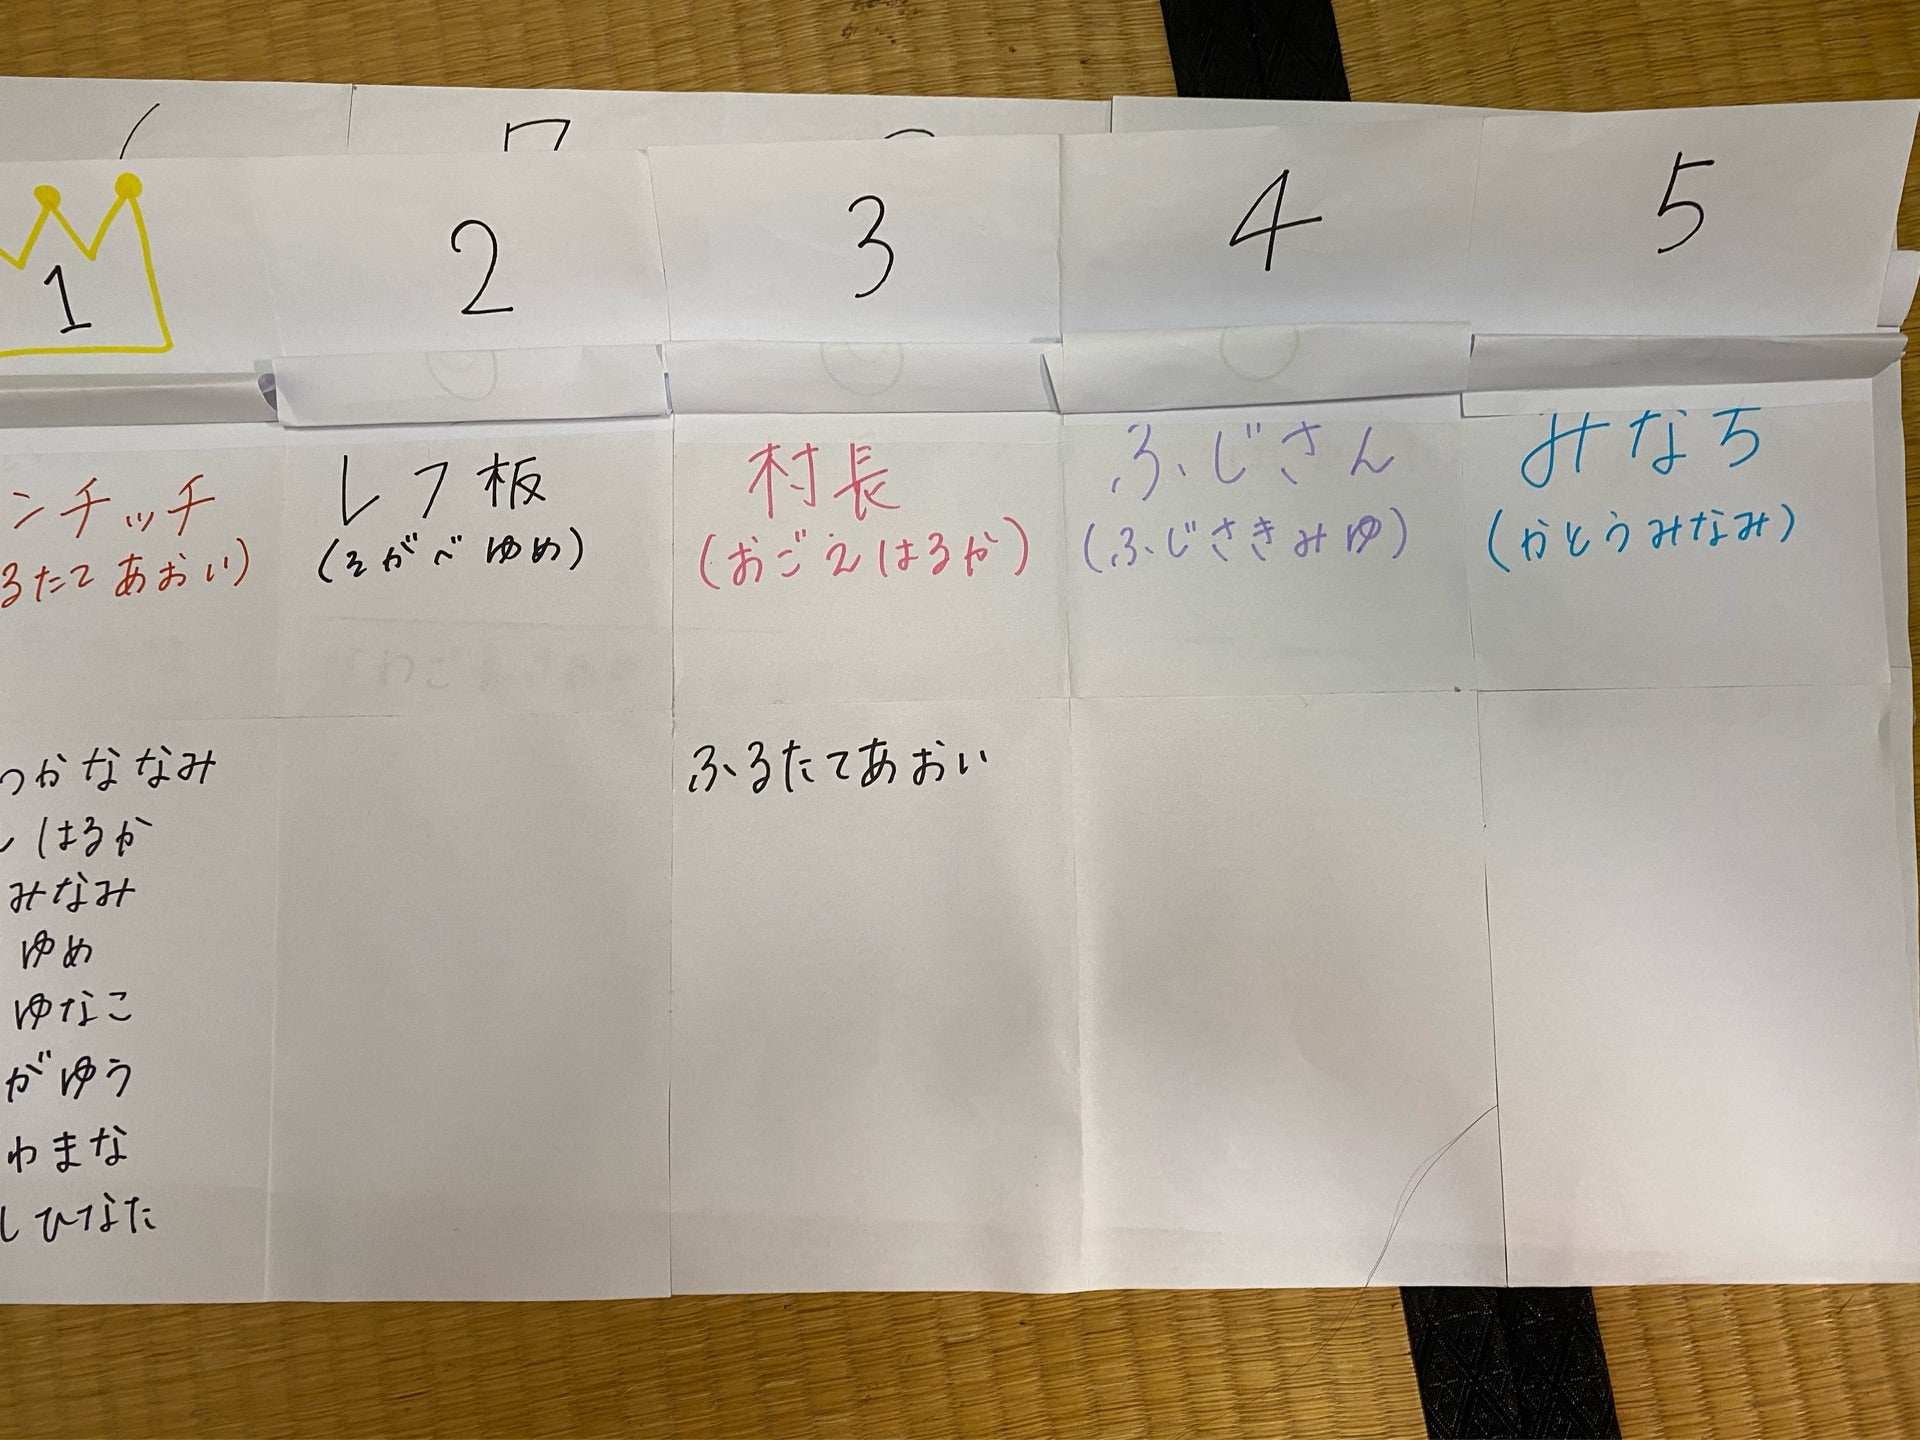 7
1
2
3
4
5
ンチッチ
るたてあおい)
レフ板
(そがべゆめ)
村長
(おごえはるか)
ふじさん
(ふじさきみゆ)
みなち
(かとうみなみ)
つかななみ
はるか
みなみ
ゆめ
ゆなこ
がゆう
わまな
しひなた
ふるたてあおい